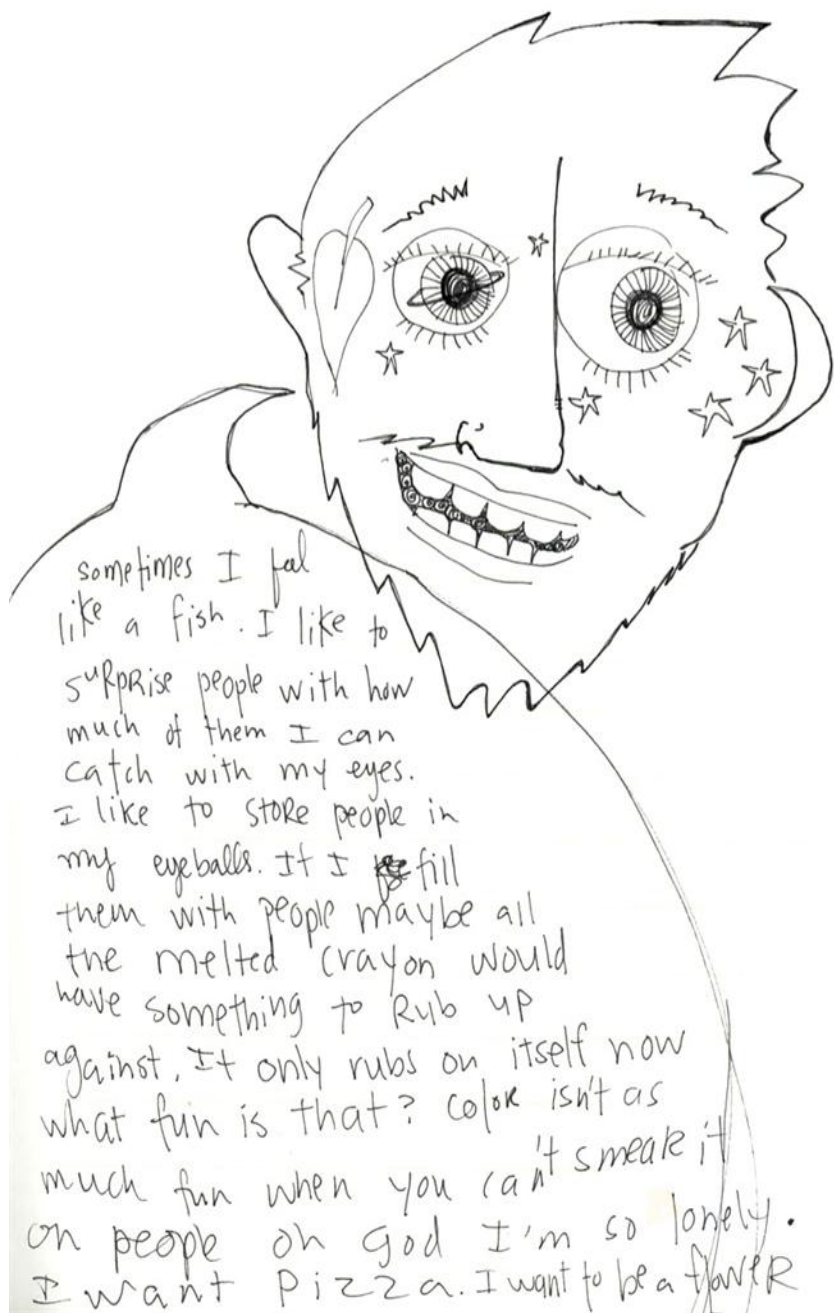 sometimes I feel
like a fish. I like to
suRpRise people with how
much of them I can
catch with my eyes.
I like to stoRe people in
my eyeballs. If I fill
them with people maybe all
the melted crayon would
have something to Rub up
against. It only rubs on itself now
what fun is that? coloR isn't as
much fun when you can't smeaR it
on people oh god I'm so lonely.
I want pizza. I want to be a floweR